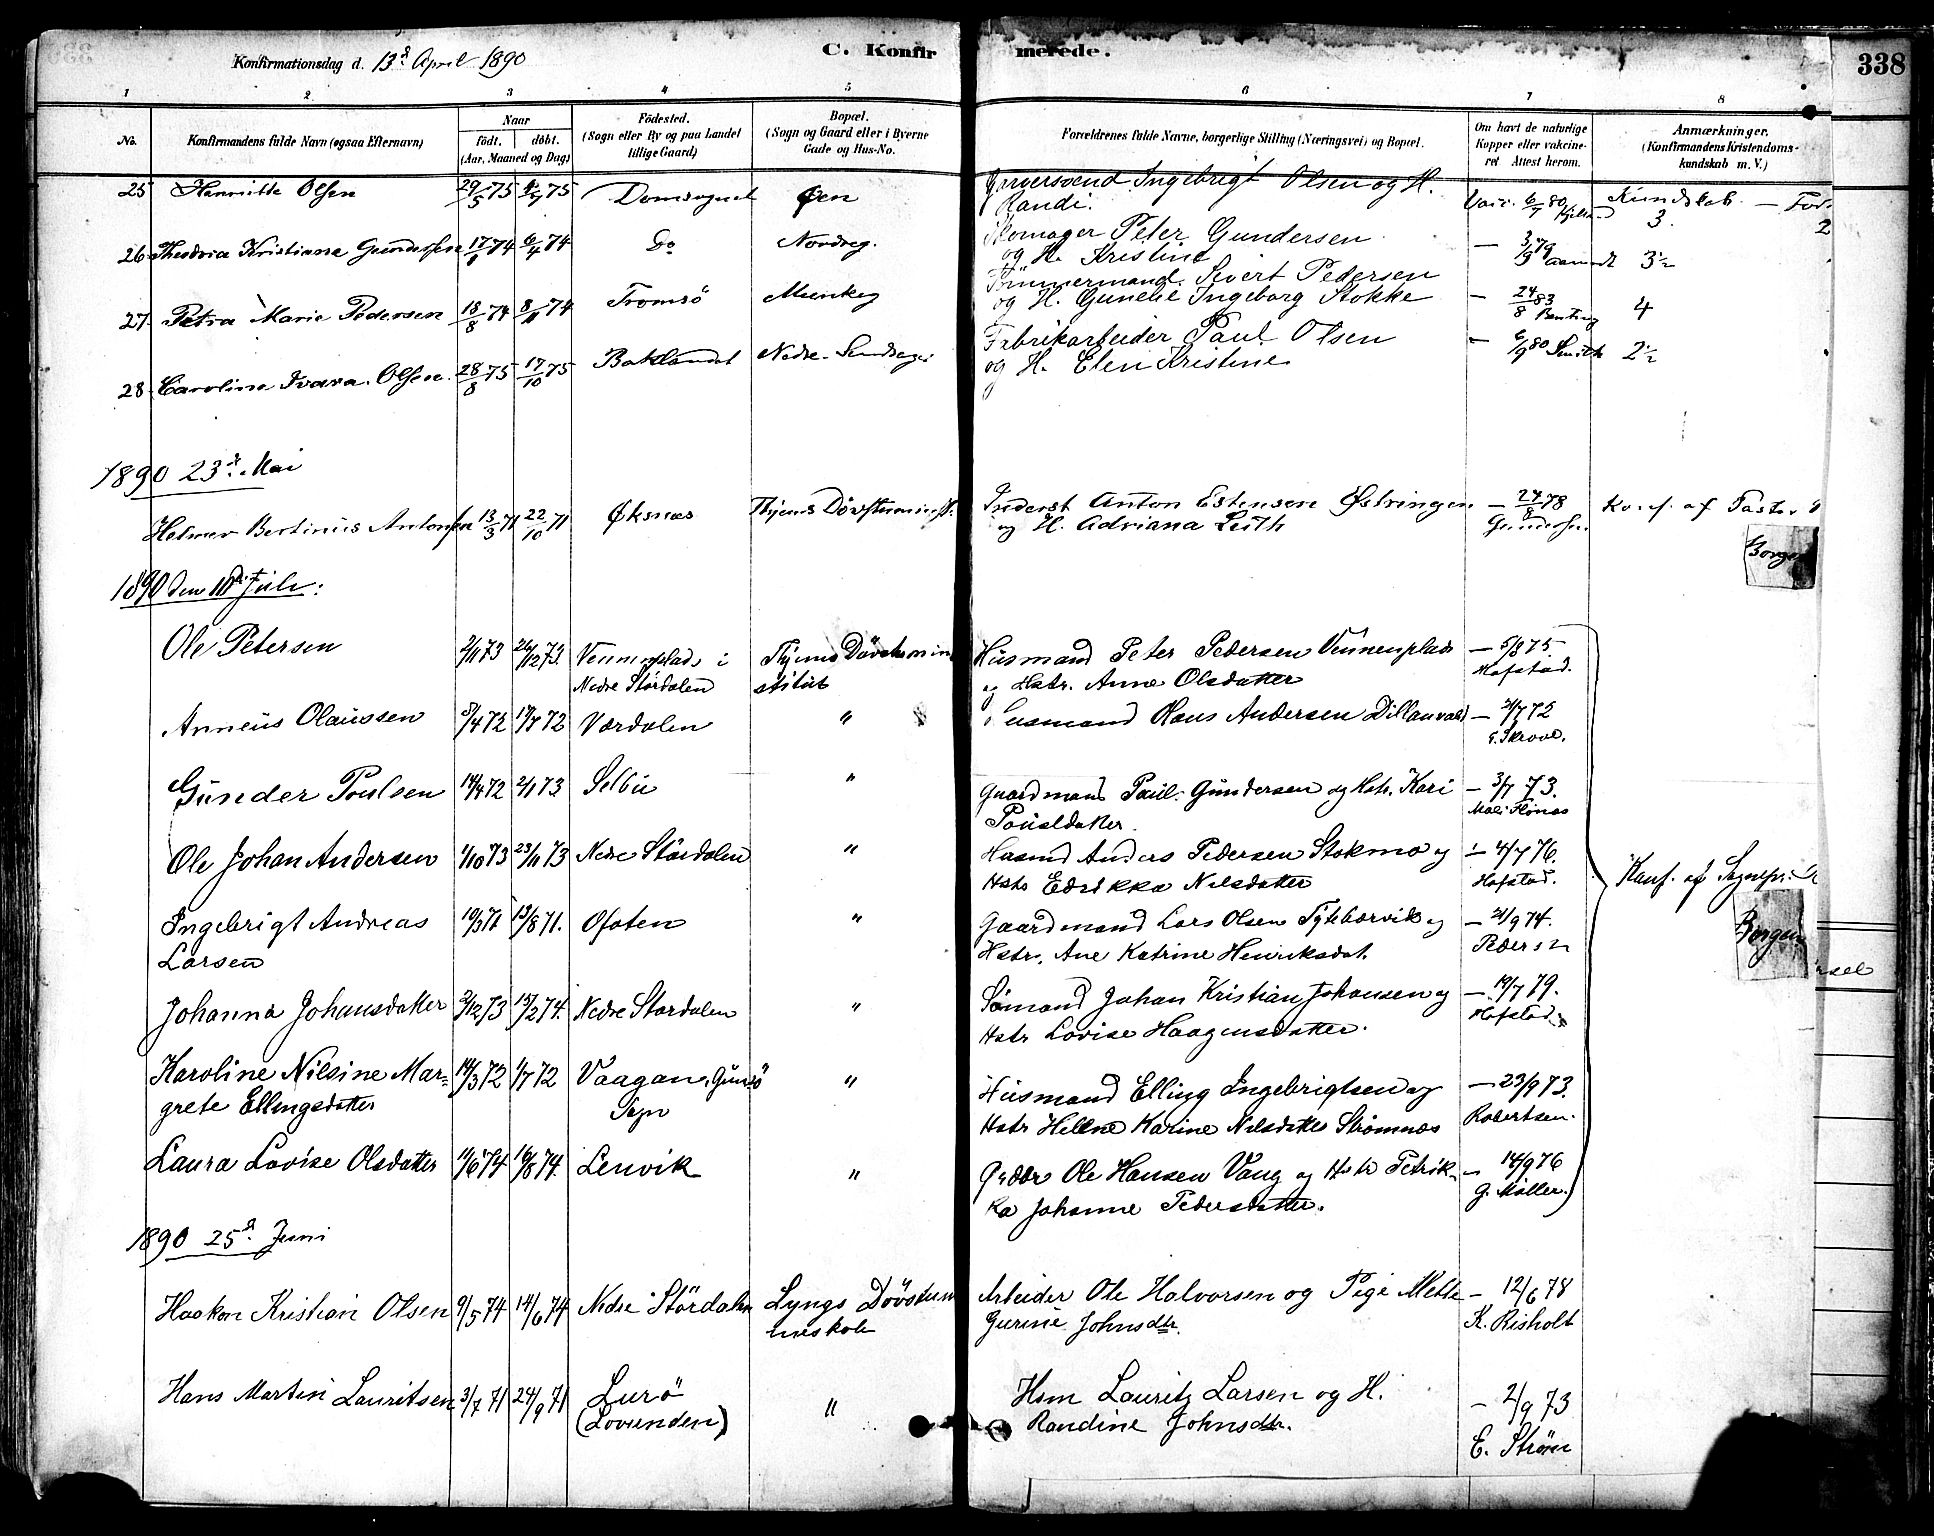 338
Konfirmationsdag d. 13d April 1890
C. Konfirmerede.
1 2 3 4 5 6 7 8
No. Konfirmandens fulde Navn (ogsaa Efternavn) Naar födt. döbt. (Aar, Maaned og Dag) Födested. (Sogn eller By og paa Landet tillige Gaard) Bopæl. (Sogn og Gaard eller i Byerne Gade og Hus-No. Forældrenes fulde Navne, borgerlige Stilling (Næringsvei) og Bopæl. Om havt de naturlige Kopper eller vakcineret Attest herom. Anmærkninger. (Konfirmandens Kristendomskundskab m. V.)
25 Henriette Olsen 29/5 75 75 Domsognet Øen Ingebrigt Olsen og H. Kundskab
Randi. 3. 2
26 Kristiane Gundersen 74 6/4 74 Do Nordreg. Skomager Peter Gundersen
og H. Kristine 3/9 79 3½
27 Petra Marie Pedersen 18/8 74 8/11 74 Tromsö Munkeg Tömmermand Sivert Pedersen
og H. Gunelie Ingeborg Stokke 24/8 83 4
28 Carolina Ivara Olsen 28/8 75 17/10 75 Baklandet Nedre Fabrikarbeider Paul Olsen
og H. Elen Kristine 6/9 80 Smith 2½
1890 23d Mai
Helmer Bertinius Antonsen 13/3 71 22/10 71 Øksnæs Inderst Anton Estensen Østringen — 78 Konf. af Pastor
og H. Adriana Gundersen
Borgen
1890 den Juli:
Ole Petersen 2/11 73 26/12 73. Vennenplads i Husmand Peter Pedersen Vennenplads — 5/8 75.
Nedre Stördalen stitut og Hstr. Anne Olsdatter Hofstad.
Anneus Olaussen 5/4 72 17/7 72 Værdalen " Husmand Olaus Andersen — 21/7 72
Gunder Poulsen 14/4 72 2/1 73 Selbu " Gaardmand Paul Gundersen og Hstr. Kari — 3/7 73.
Pouelsdatter.
Ole Johan Andersen 1/10 73 23/11 73 Nedre Stördalen " Husmd Anders Pedersen Stokmo og 4/7 76.
Konf. af Sognepr.
Hstr Nilsdatter Hofstad.
Ingebrigt Andreas 10/3 71 13/8 71. Ofoten " Gaardmand Lars Olsen og — 21/9 74.
Larsen Hstr. Ane Katrine Henriksdat. Pedersen
Borgen
Johanna Johansdatter 2/12 73 15/2 74. Nedre Stordalen " Sömand Johan Kristian Johansen og — 19/7 79.
Hstr Lovise Haagensdatter. Hofstad.
Karoline Nilsine Mar= 14/3 72 1/7 72 Vaagan, " Husmand Elling Ingebrigtsen og — 23/9 73.
grete Ellingsdatter Sogn Hstr Helene Karine Nilsdatter Strømnæs Robertsen.
Laura Lovise Olsdatter 74 16/8 74. Lenvik " Ole Hansen Vang og Hstr Petrik- — 14/9 76
ka Johanne Pedersdatter. G. Möller.
1890 25d Juni
Haakon Kristian Olsen 9/5 74 14/6 74 Nedre Stördalen Lyngs Dövstum Arbeider Ole Halvorsen og Pige Mette — 12/6 78
meskole Gurine Johnsdtr. K. Risholt
Hans Martin Lauritsen 3/7 71 24/9 71 Lurö " Hsm Lauritz Larsen og H. — 2/9 73
(Lovunden) Randine Johnsdtr. E. Ström